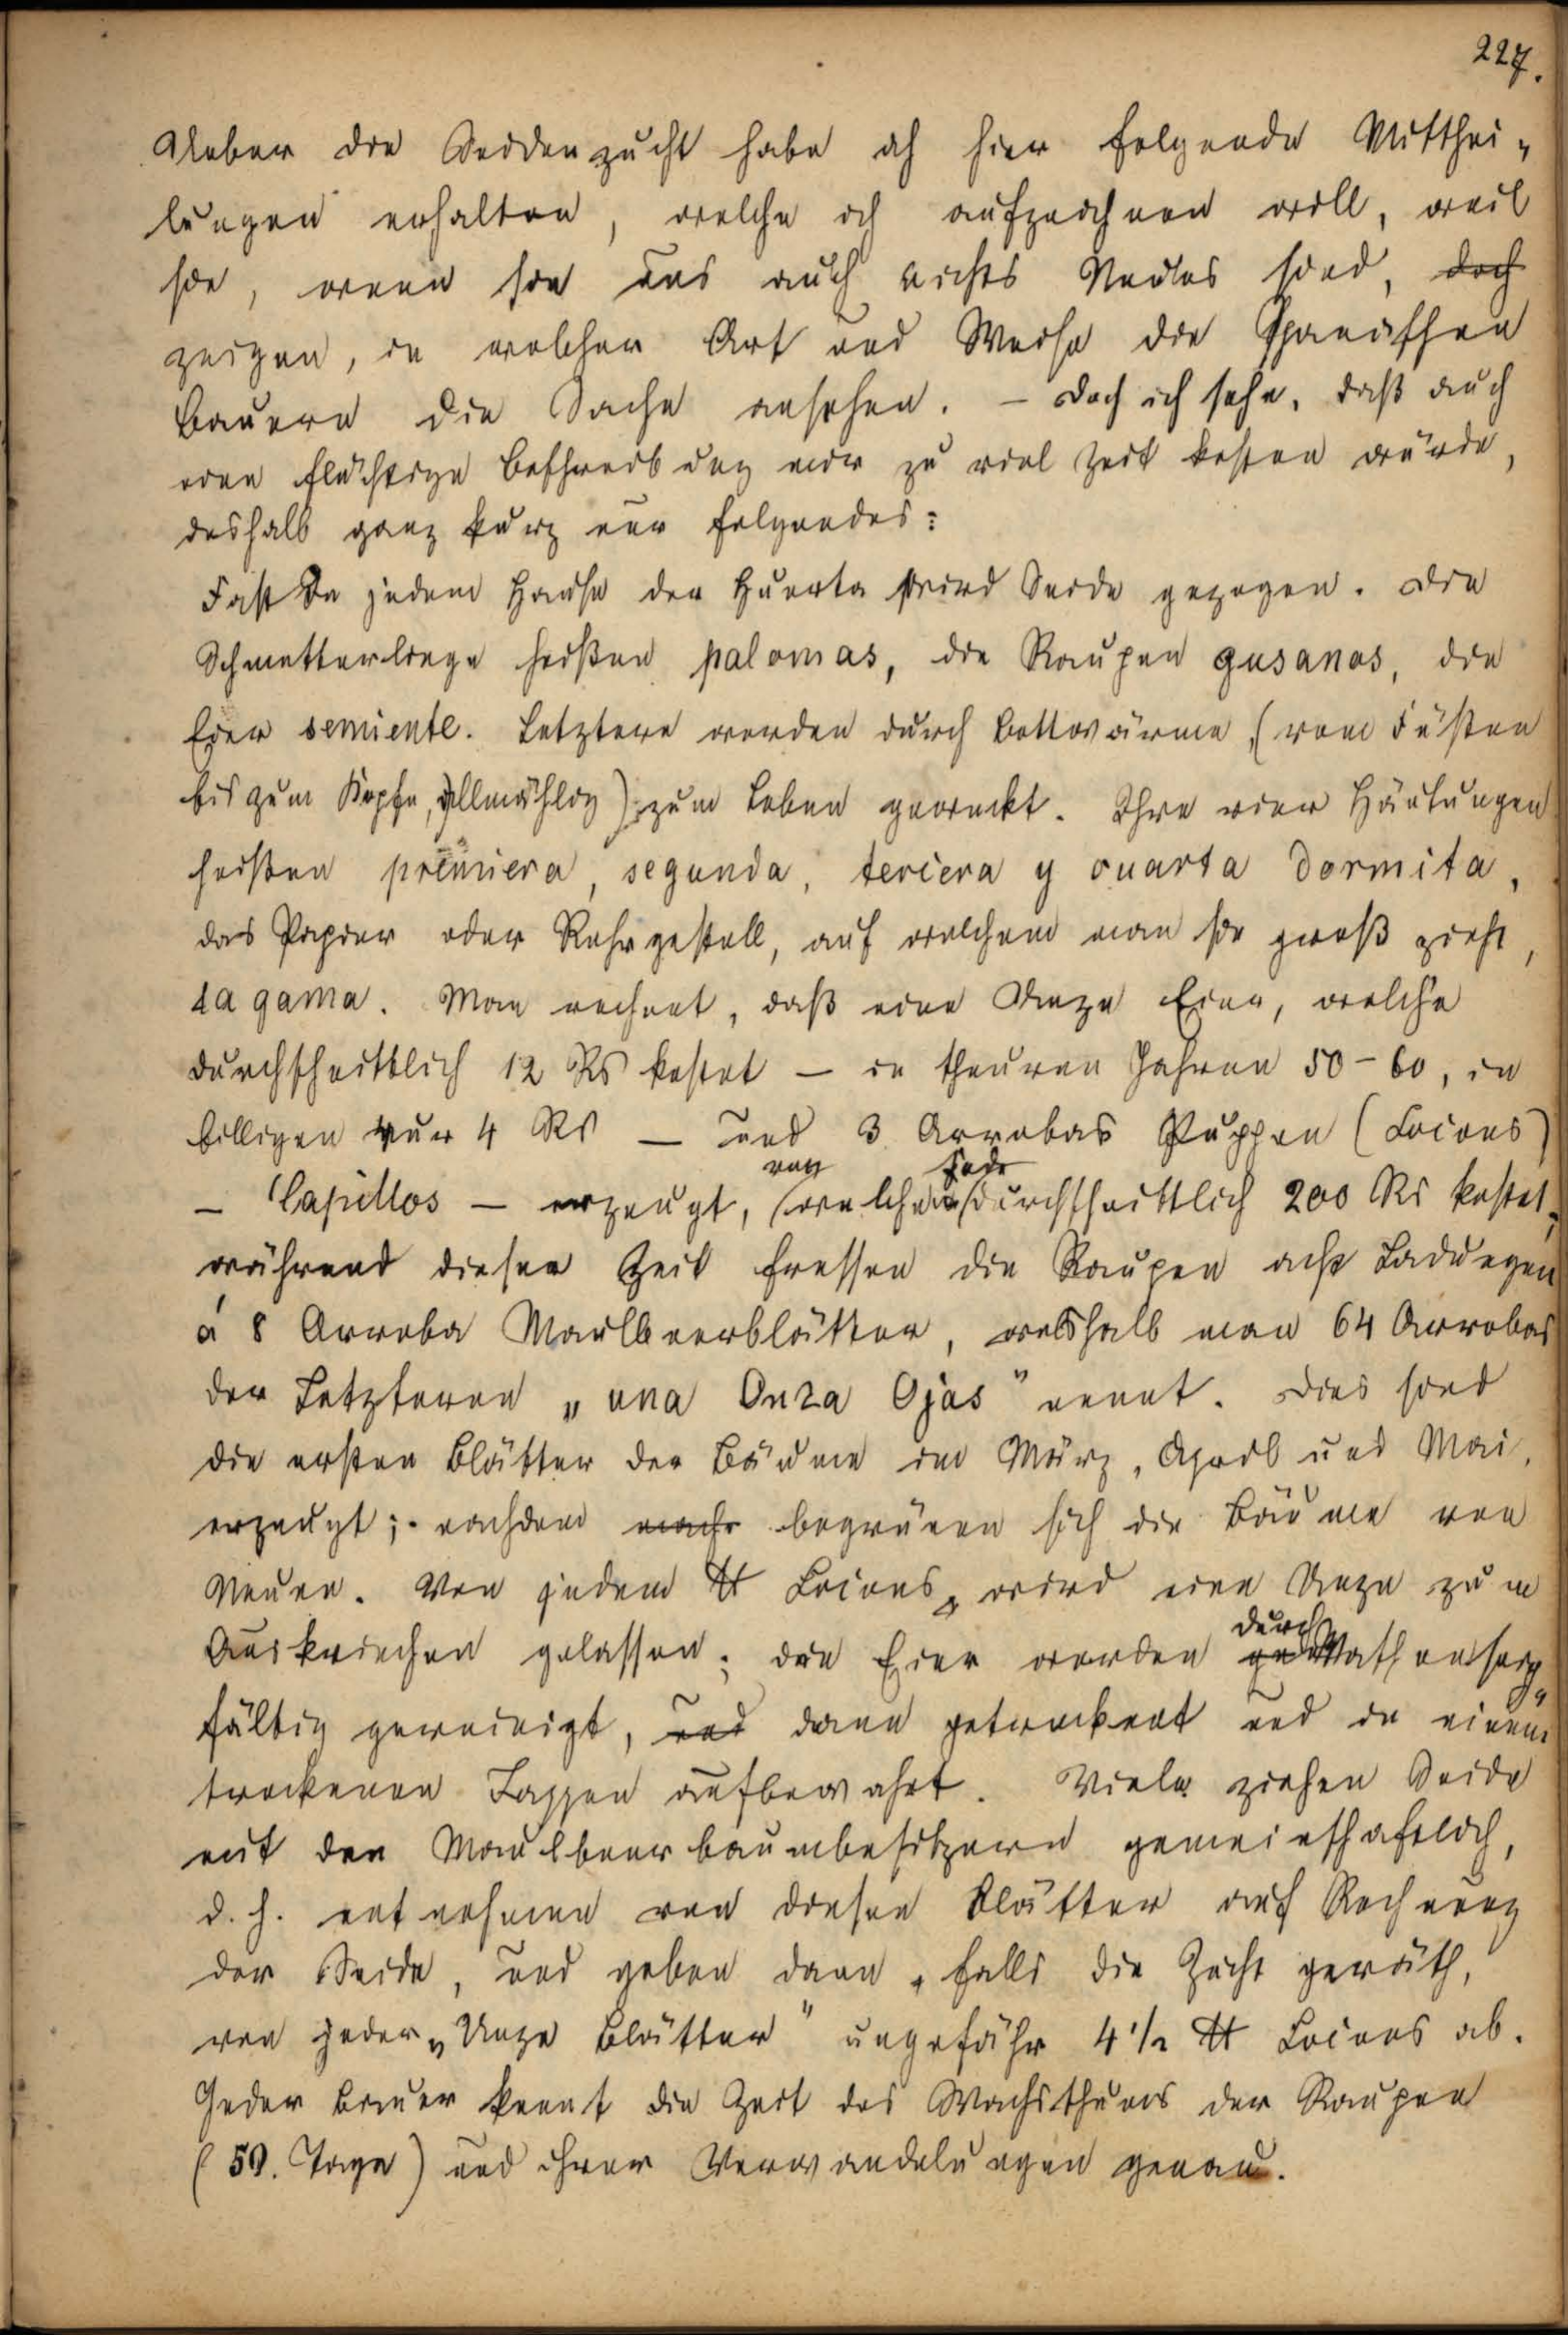 227.
Ueber die Seidenzucht habe ich hier folgende Mitthei-
lungen erhalten, welche ich aufzeichnen will, weil
sie, wenn sie uns auch nichts Neues sind, doch
zeigen, in welcher Art und Weise die Spanischen
Bauern die Sache ansehen. – Doch ich sehe, daß auch
eine flüchtige Beschreibung mir zu viel Zeit kosten würde,
deshalb ganz kurz nur folgendes:
Fast in jedem Hause der Huerta wird Seide gezogen. Die
Schmetterlinge heißen palomas, die Raupen gusanos, die
Eier semiente. Letztere werden durch Bettwärme (vom Füßen
bis zum Kopfe, allmählig) zum Leben geweckt. Ihre vier Häutungen
heißen primiera, segunda, terciera y cuarta dormita,
das Papier oder Rohrgestell, auf welchem man sie groß zieht,
la gama. Man rechnet, daß eine Unze Eier, welche
durchschnittlich 12 Rs kostet – in theuren Jahren 50–60, in
billigen nur 4 Rs – und 3 Arrobas Puppen (Cocons)
von jede
– Capillos – erzeugt, welchen durchschnittlich 200 Rs kostet,
während dieser Zeit fressen die Raupen acht Ladungen
á 8 Arroba Maulbeerblätter, weshalb man 64 Arrobas
der Letzteren „una Onza Ojas" nennt. Dies sind
die ersten Blätter der Bäume im März, April und Mai,
erzeugt; nachdem begrünen sich die Bäume von
Neuen. Von jedem ℔ Cocons, wird eine Unze zum
durch
Auskriechen gelassen; die Eier werden Wathen sorg-
fältig gereinigt, und dann getrocknet und in einem
trockenen Lappen aufbewahrt. Viele ziehen Seide
mit den Maulbeerbaumbesitzern gemeinschaftlich,
d. h. entnehmen von diesen Blätter auf Rechnung
der Seide, und geben dann, falls die Zucht geräth,
von jeder „Unze Blätter" ungefähr 4 1/2 ℔ Cocons ab.
Jeder Bauer kennt die Zeit des Wachsthums der Raupen
(50. Tage) und ihrer Verwandelungen genau.